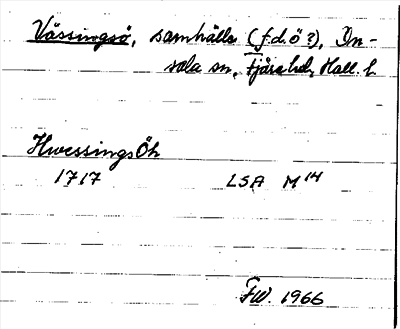 Vässingsö, samhälle (f.d. ö?), On-
sala sn, Fjäre hd, Hall. l.
Hwessings Öh
1717 LSA M 14
FW. 1966